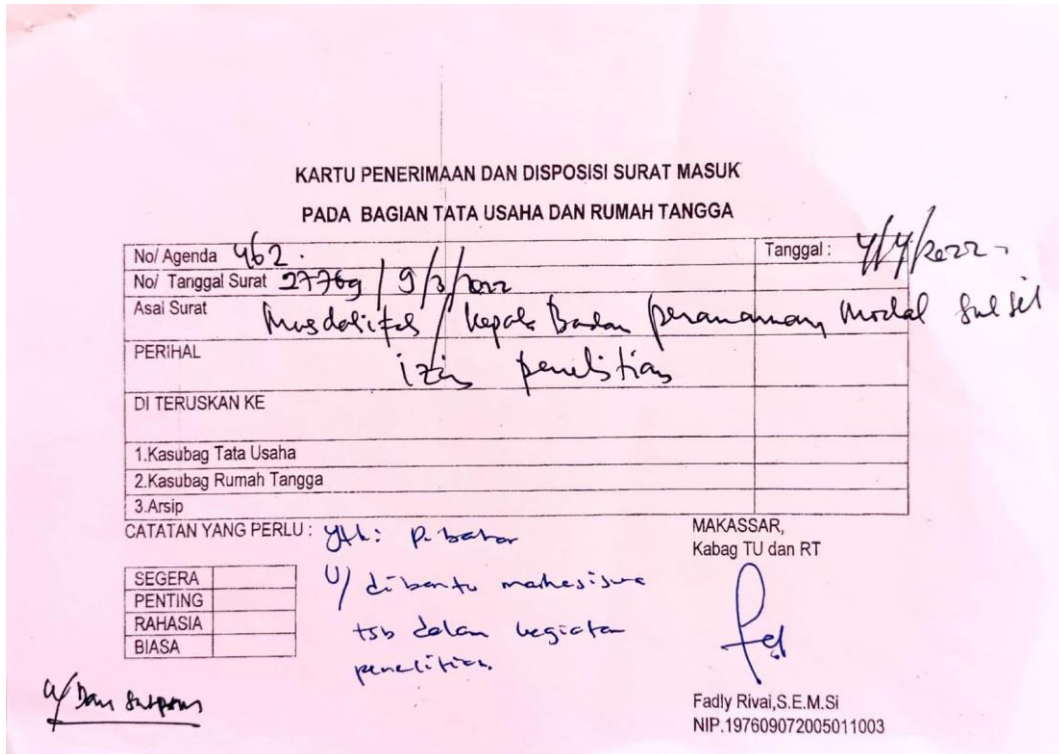 KARTU PENERIMAAN DAN DISPOSISI SURAT MASUK
PADA BAGIAN TATA USAHA DAN RUMAH TANGGA
No/ Agenda 462. Tanggal : 4/4/2022
No/ Tanggal Surat 27769 / 9/3/2022
Asal Surat / Kepala Badan penanaman Modal Sulsel
PERIHAL izin penelitian
DI TERUSKAN KE
1.Kasubag Tata Usaha
2.Kasubag Rumah Tangga
3.Arsip
CATATAN YANG PERLU : yth: P.
U/ dibantu mahasiswa
tsb dalam kegiatan
penelitian.
SEGERA
PENTING
RAHASIA
BIASA
MAKASSAR,
Kabag TU dan RT
Fadly Rivai,S.E.M.Si
NIP.197609072005011003